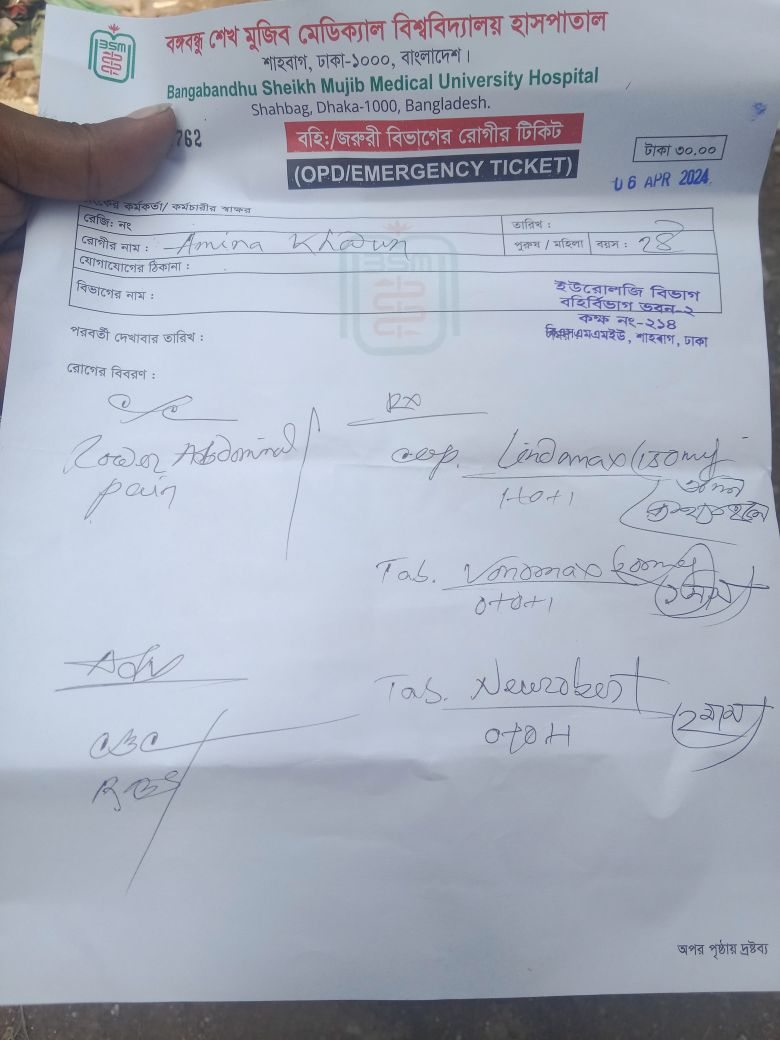 বঙ্গবন্ধু শেখ মুজিব মেডিক্যাল বিশ্ববিদ্যালয় হাসপাতাল
শাহবাগ, ঢাকা-১০০০, বাংলাদেশ।
BSM
Bangabandhu Sheikh Mujib Medical University Hospital
Shahbag, Dhaka-1000, Bangladesh.
762
বহিঃ/জরুরী বিভাগের রোগীর টিকিট
টাকা ৩০.০০
(OPD/EMERGENCY TICKET)
06 APR 2024
কর্মকর্তা/ কর্মচারীর স্বাক্ষর
রেজি: নং তারিখ :
রোগীর নাম : Amina Khatun পুরুষ / মহিলা বয়স : ২৪
যোগাযোগের ঠিকানা :
বিভাগের নাম :
ইউরোলজি বিভাগ
বহির্বিভাগ ভবন-২
কক্ষ নং-২১৪
শাহবাগ, ঢাকা
পরবর্তী দেখাবার তারিখ :
রোগের বিবরণ :
C/C
Lower Abdominal
pain
Rx
cap. Lindamax (150mg
1+0+1
Tab.
0+0+1
Adv
Tab. Neurobest
0+0+1
CBC
RBS
অপর পৃষ্ঠায় দ্রষ্টব্য